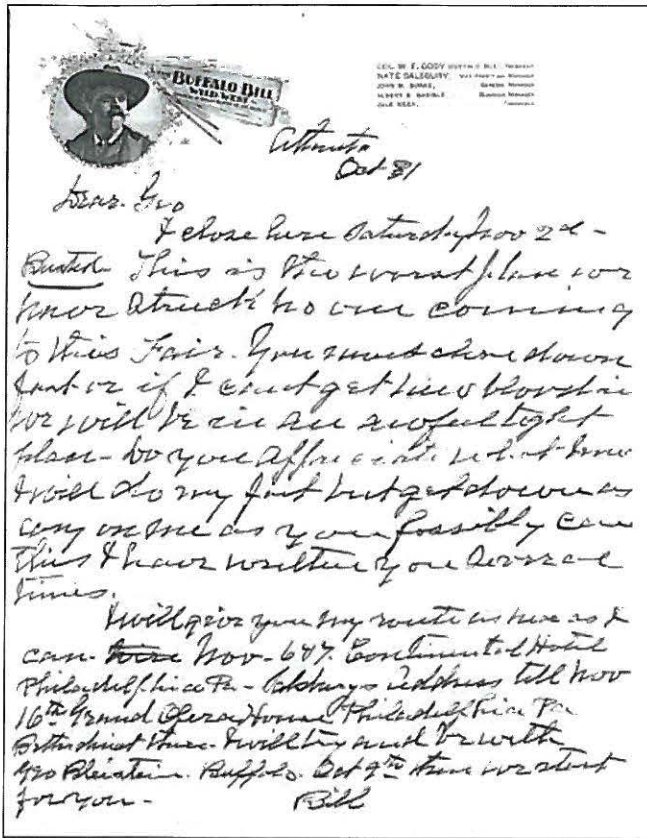 BUFFALO BILL
WILD WEST
COL. W. F. CODY
NATE SALSBURY,
JOHN M. BURKE,
Atlanta
Oct 31
Dear Geo
I close here Saturday Nov 2nd -
Busted This is the worst place we
ever struck no one coming
to this Fair. You must close down
fast or if I cant get new blood in
we will be in an awful tight
place - Do you appreciate what
I will do my part but get down as
easy on me as you possibly can
this I have written you several
times.
I will give you my route as near as I
can - Nov - 6 & 7. Continental Hotel
Philadelphia Pa - address till Nov
16th Grand Opera House Philadelphia Pa
I will try and be with
Geo Bleistein. Buffalo. Oct 9th then we start
for you - Bill